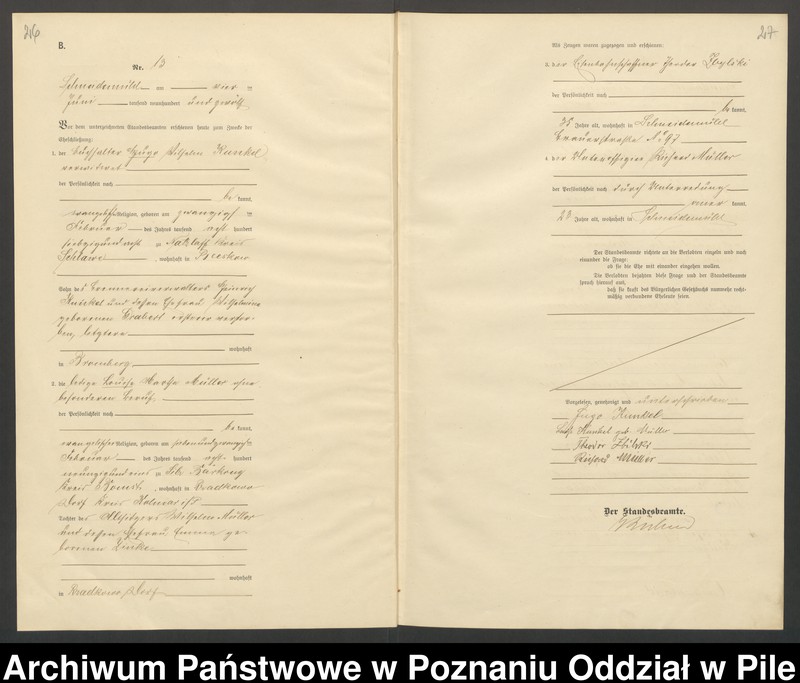 26
B.
Nr. 13
Schneidemühl am vier ten
Juni tausend neunhundert und zwölf
Vor dem unterzeichneten Standesbeamten erschienen heute zum Zwecke der
Eheschließung:
1. der Buchhalter Hugo Wilhelm Kunkel
verwitwet
der Persönlichkeit nach
be kannt,
evangelischer Religion, geboren am zwanzigsten
Februar des Jahres tausend acht hundert
siebzigundacht zu Natzlaff Kreis
Schlawe, wohnhaft in
Sohn des Brennereiverwalters
Kunkel und dessen Ehefrau Wilhelmine
geborenen ersterer verstor-
ben, letztere
wohnhaft
in Bromberg
2. die ledige Louise Martha Müller ohne
besonderen Beruf,
der Persönlichkeit nach
be kannt,
evangelischer Religion, geboren am siebenundzwanzigsten
Februar des Jahres tausend acht hundert
neunzigundeins zu
Kreis Bomst, wohnhaft in Radkowo
Dorf Kreis Kolmar i/P
Tochter des Altsitzers Wilhelm Müller
und dessen Ehefrau Emma ge-
borenen Linke
wohnhaft
in Radkowo, Dorf
27
Als Zeugen waren zugezogen und erschienen:
3. der Eisenbahnschaffner Theodor
der Persönlichkeit nach
be kannt,
35 Jahre alt, wohnhaft in Schneidemühl
Brauerstraße No 97
4. der Unteroffizier Richard Müller
der Persönlichkeit nach durch Unterredung
aner kannt,
23 Jahre alt, wohnhaft in Schneidemühl
Der Standesbeamte richtete an die Verlobten einzeln und nach
einander die Frage:
ob sie die Ehe mit einander eingehen wollen.
Die Verlobten bejahten diese Frage und der Standesbeamte
sprach hierauf aus,
daß sie kraft des Bürgerlichen Gesetzbuchs nunmehr recht-
mäßig verbundene Eheleute seien.
Vorgelesen, genehmigt und unterschrieben
Hugo Kunkel
Kunkel geb. Müller
Theodor
Richard Müller
Der Standesbeamte.
Archiwum Państwowe w Poznaniu Oddział w Pile